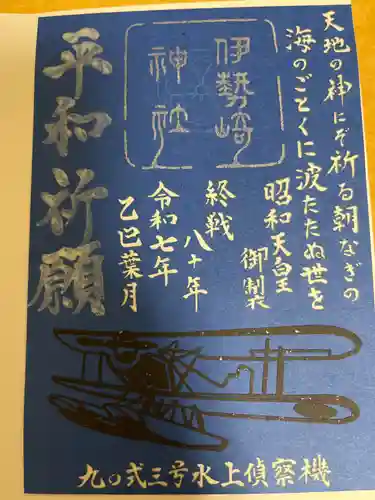 天地の神にぞ祈る朝なぎの
海のごとくに波たたぬ世を
昭和天皇
御製
伊勢崎
神社
終戦
八十年
令和七年
乙巳葉月
平和祈願
九〇式三号水上偵察機